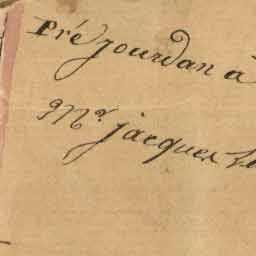 Pré jourdan à
Mr. jacques